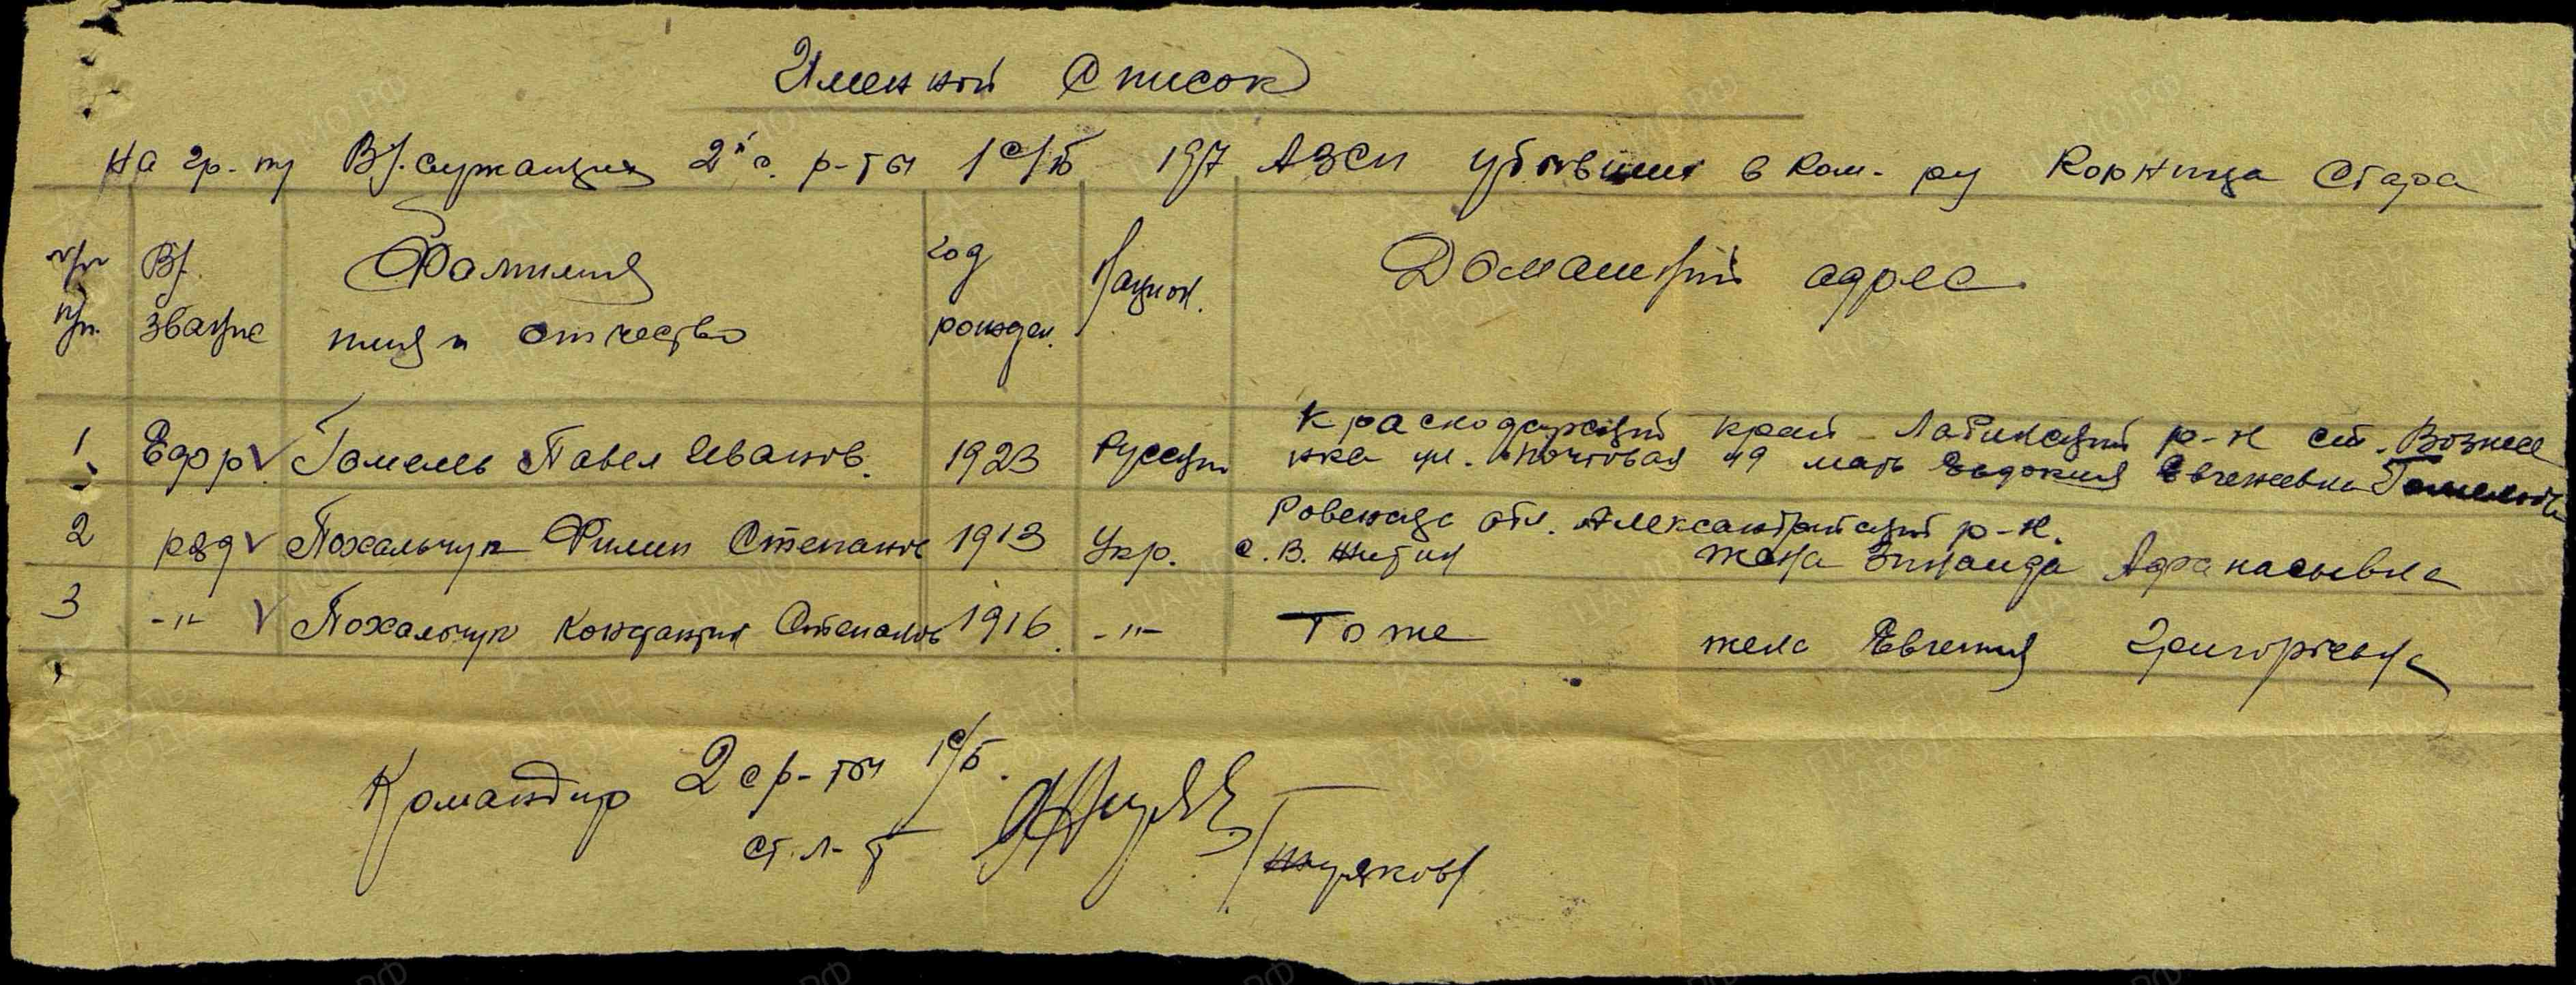 Именной список
на гр-пу В/служащих 2й с. р-ты 1 с/б 197 АЗСП убывших в ком-ру Корница Стара
№/№ п/п. В/. звание Фамилия имя и отчество год рожден. Национ. Домашний адрес
1. Ефр Гомель Павел Иванов. 1923 Русский Краснодарский край Лабинский р-н ст. Вознес
нка ул. Почтовая 49 мать Евдокия Евгеневна
2 ряд Похальчук Филип Степанов 1913 Укр. Ровенская обл. Александрийский р-н.
с. В. Житин жена Зинаида Афанасьевна
3 -"- Похальчук Кондантин Степанов 1916. -"- То же жена Евгения Григорьевна
Командир 2 с р-ты 1 с/б.
ст. л-т